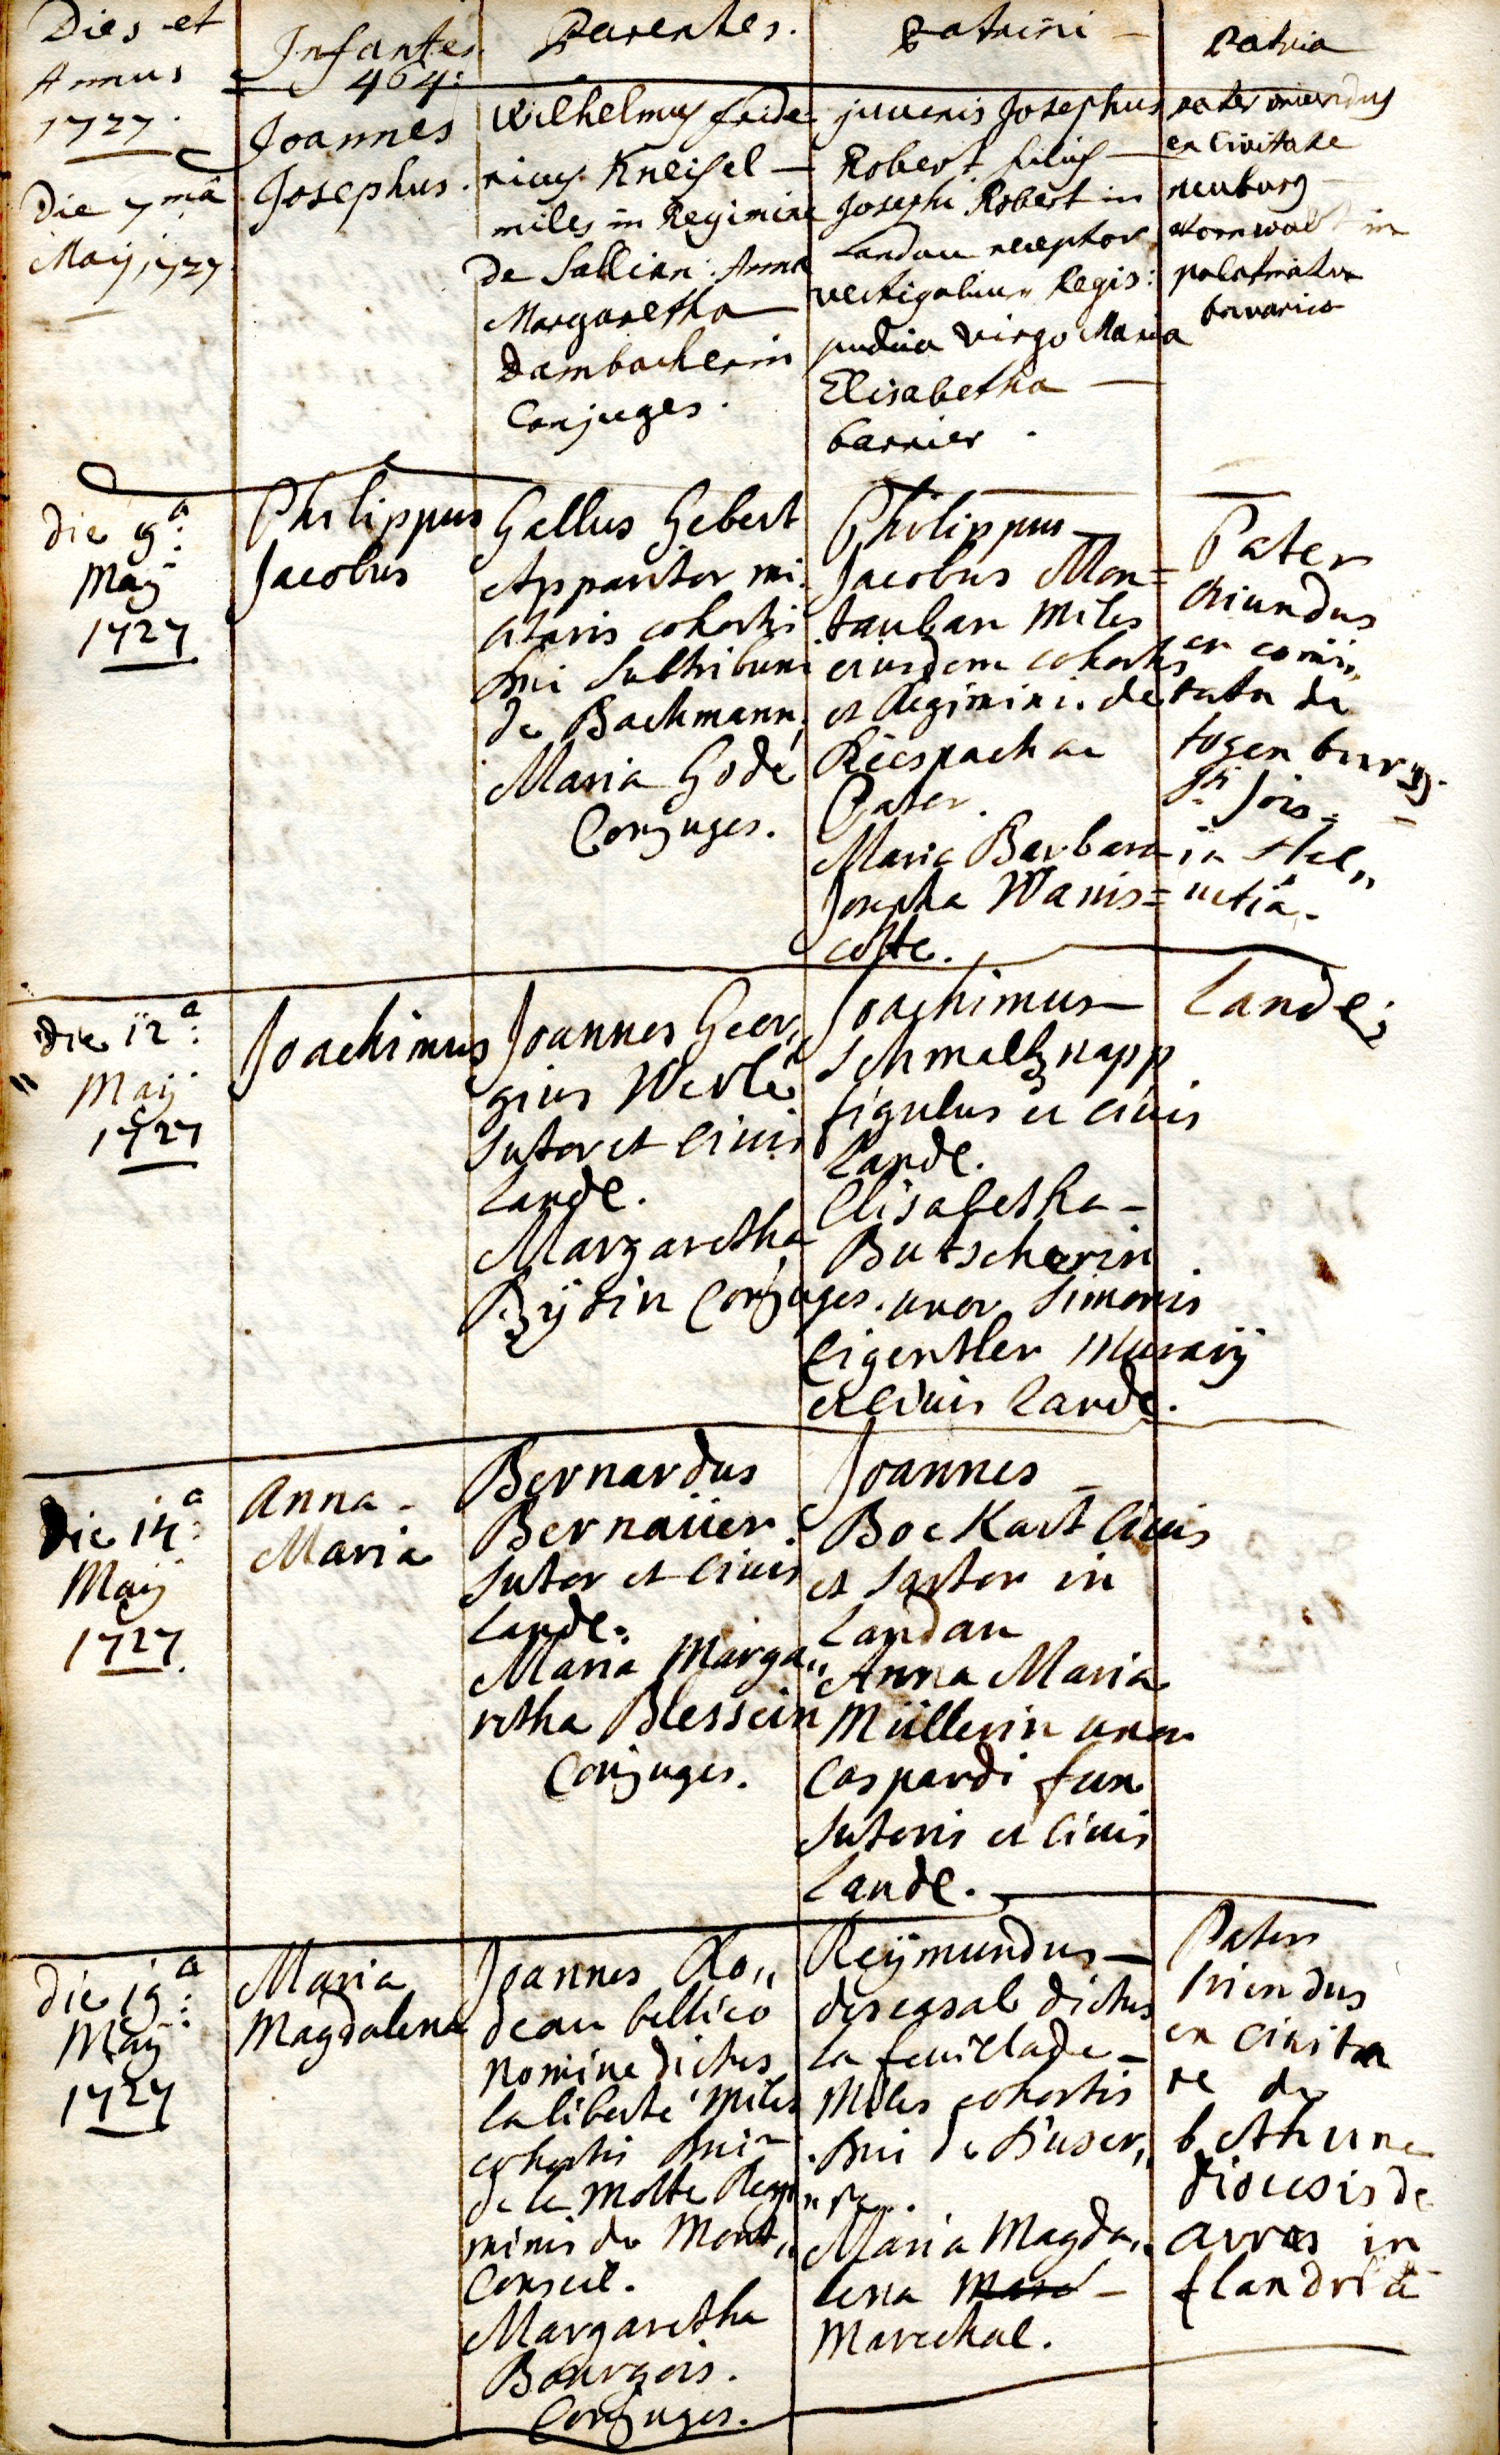 Dies et
Annus
1727.
Infantes
464:
Parentes.
Patrini
Patria
Die 7ma
Maij, 1727.
Joannes
Josephus.
Wilhelmus fride
ricus Kneisel
miles in Regimine
de Sallian: Anna
Margaretha
Dambacherin
Conjuges.
juvenis Josephus
Robert filius
Josephi Robert in
Landau receptor
vectigalium Regis:
pudica virgo Maria
Elisabetha
barrier.
pater oriundus
ex Civitate
neuburg
in
palatinatu
bavarico
die 9a:
Maij
1727
Philippus
Jacobus
Gallus Gebert
Apparitor mi
litaris cohortis
Dni Subtribuni
de Bachmann,
Maria Godé
Conjuges.
Philippus
Jacobus Mon=
tauban Miles
eiusdem cohortis
et Regimini. de
Pater.
Maria Barbara
Josepha Wanis=
cotte.
Pater
Oriundus
ex comi„
tatu de
togenburg
Sti Jois
in Hel„
uetiâ.
die 12a:
Maij
1727
Joachimus
Joannes Geor„
gius Werlé
Sutor et Ciuis
Landę.
Margaretha
Conjuges.
Joachimus
Schmaltznapp
figulus et ciuis
Landę.
Elisabetha
Butscherin
uxor Simonis
Eigentler Murarij
et Ciuis Landę.
Landę;
Die 14a:
Maij
1727.
Anna
Maria
Bernardus
Bernaüer
Sutor et Ciuis
Landę.
Maria Marga„
retha Blessein
Conjuges.
Joannes
Boekart Ciuis
et Sartor in
Landau
Anna Maria
Müllerin uxor
Caspardi fux
Sutoris et Ciuis
Landę.
die 19a:
Maij
1727
Maria
Magdalena
Joannes Ro„
deau bellico
Nomine dictus
la liberté Miles
cohortis Dni
de la Motte Regi
minis de Mont„
Conseil.
Margaretha
Bourgois.
Conjuges.
Reÿmundus
descasals dictus
la feuillade
Miles cohortis
Dni de
Maria Magda„
lena Maré
Marechal.
Pater
oriundus
ex Ciuita
te de
bethune
diocesis de
arras in
flandriâ